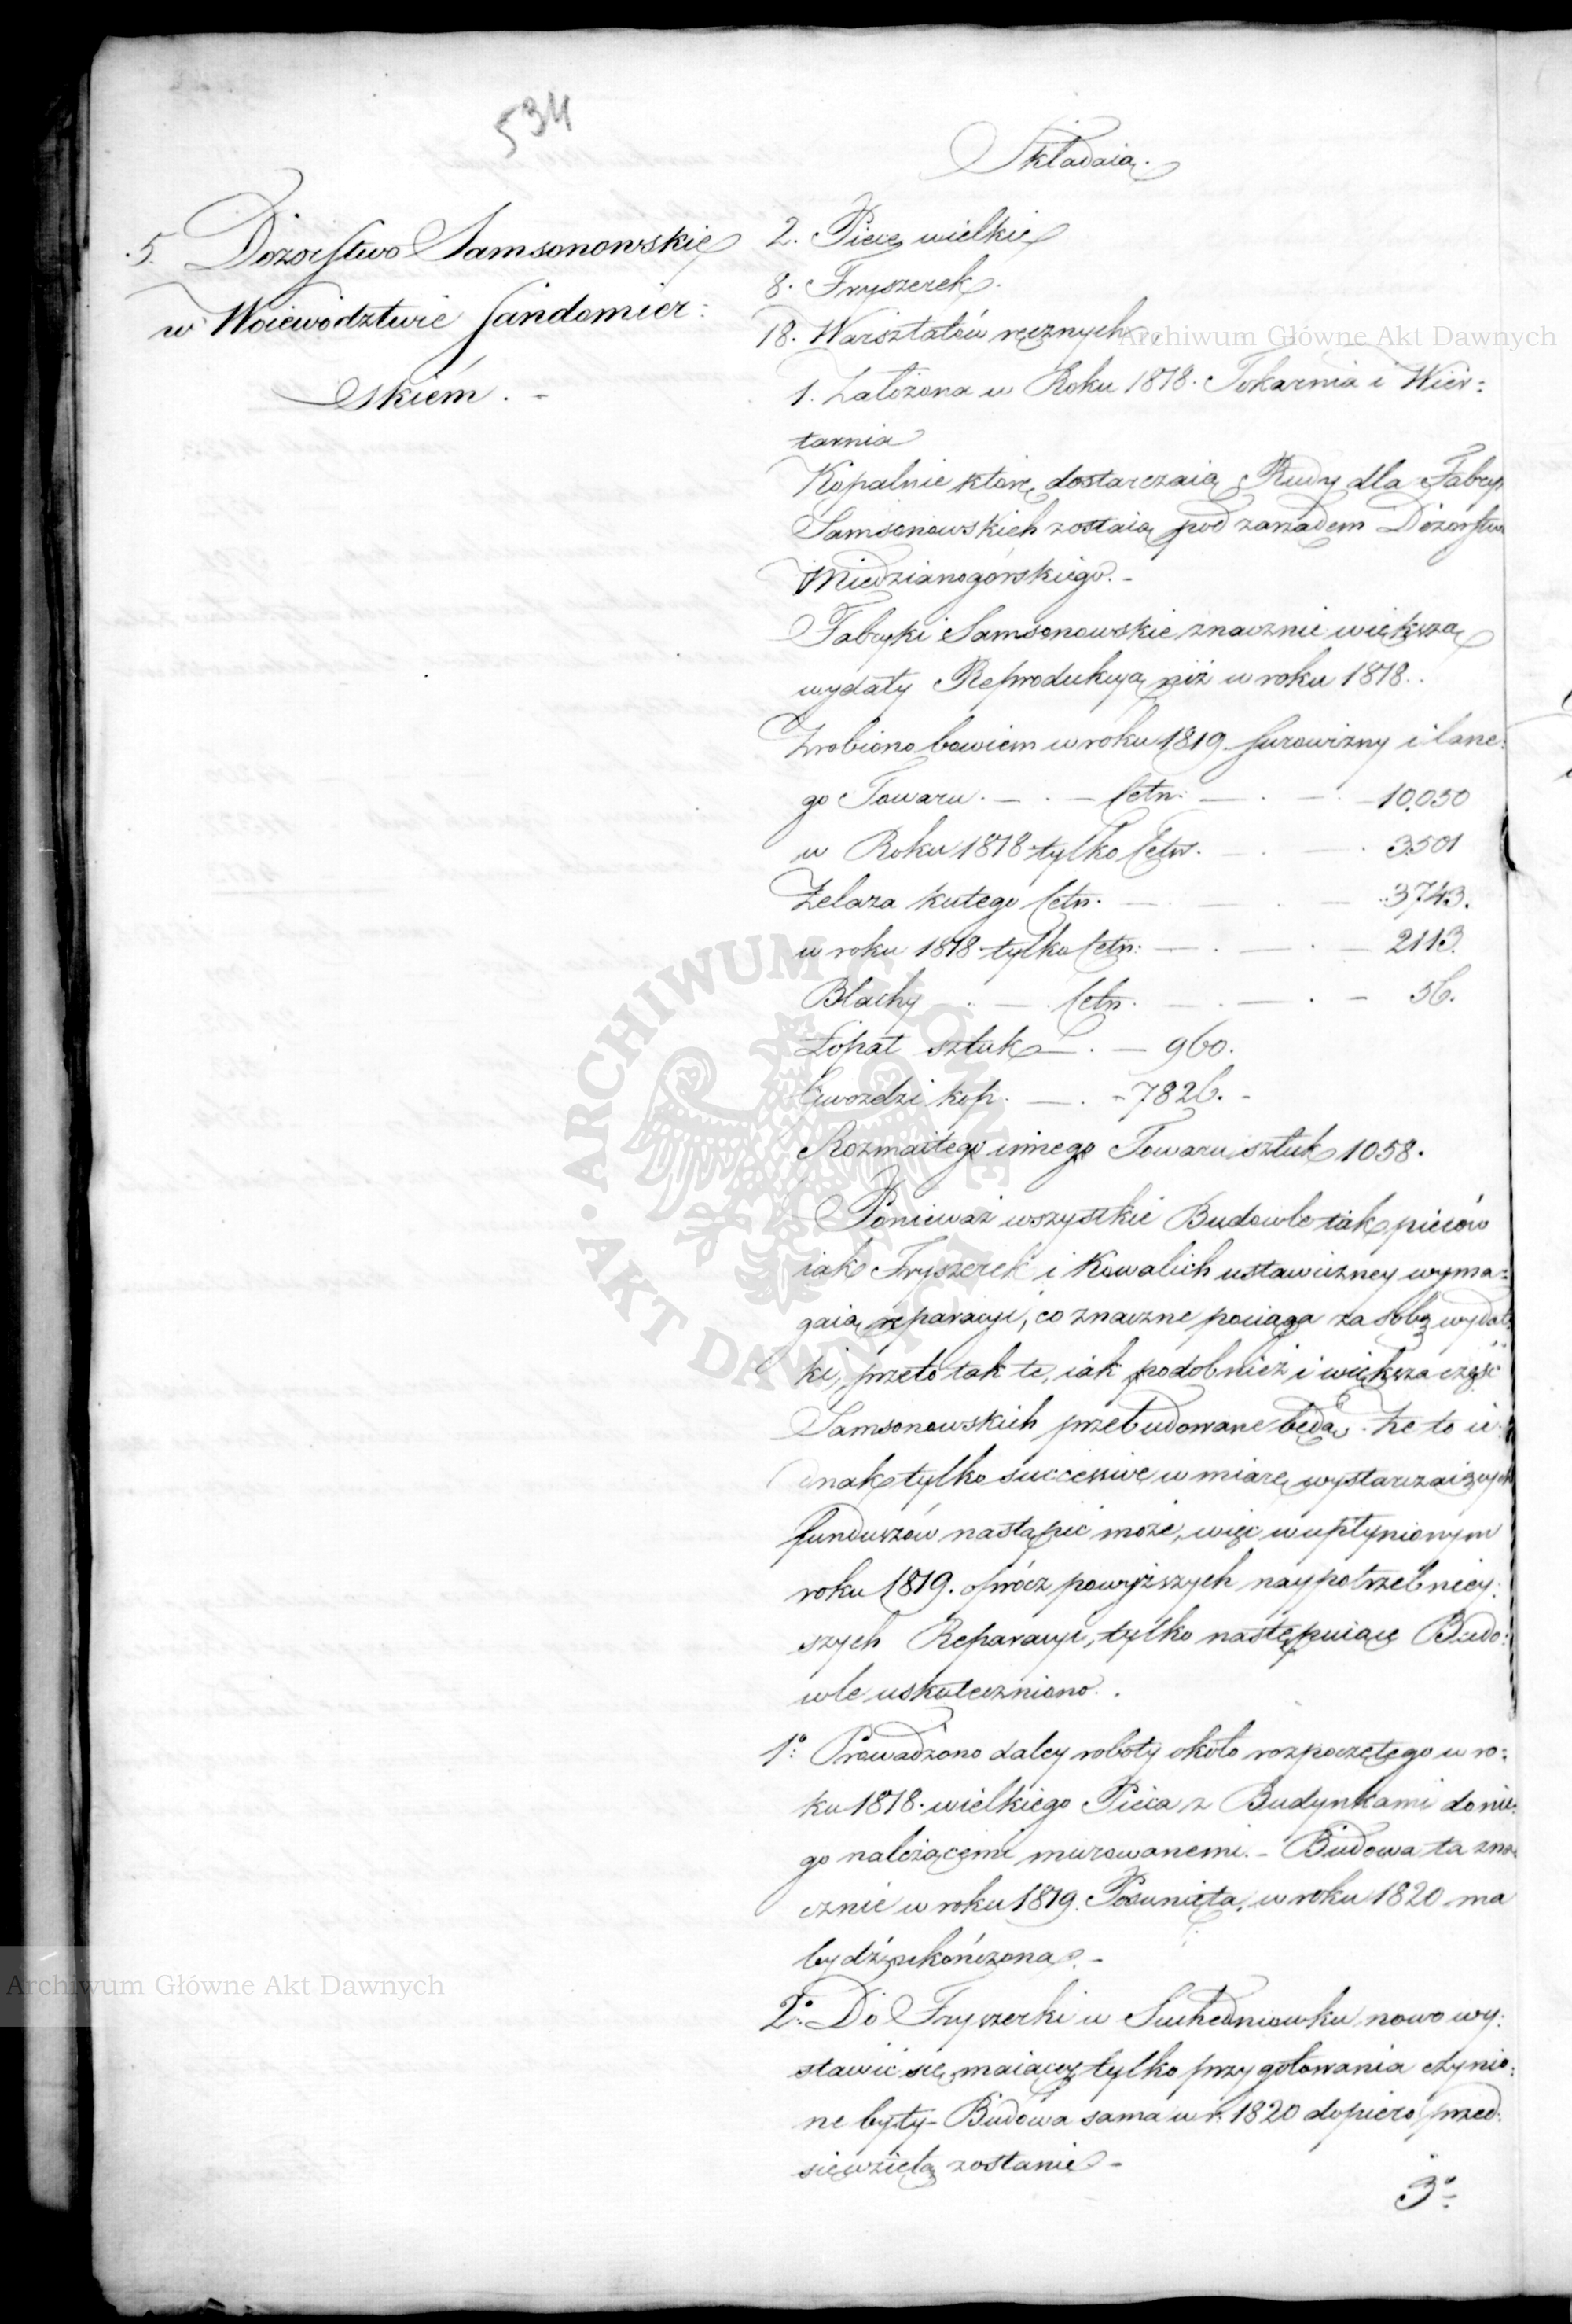 534
Składaią.
5. Dozorstwo Samsonowskie
w Woiewództwie Sandomier:
skiém. -
2. Piece wielkie
8. Fryszerek.
18. Warsztatów ręcznych
1. Założona w Roku 1818. Tokarnia i Wier:
tarnia
Kopalnie które dostarczaią Rudy dla Fabryk
Samsonowskich zostaią pod zarządem Dozorstwa
Miedzianogórskiego. -
Fabryki Samsonowskie znacznie większą
wydały Reprodukcyą niż w roku 1818.
Zrobiono bowiem w roku 1819. Surowizny i lane:
go Towaru. — . — Cetn: — . — . — 10,050
w Roku 1818 tylko Cetn. — . — . 3501
Żelaza kutego Cetn. — . — . — 3743.
w roku 1818 tylko Cetn: — . — . — 2113.
Blachy . — . Cetn. — . — . — 56.
Łopat sztuk — . — 960.
Gwozdzi kop. — . - 7826. -
Rozmaitego innego Towaru sztuk 1058.
Ponieważ wszystkie Budowle tak pieców
iak Fryszerek i Kowalich ustawiczney wyma:
gaią reparacyi, co znaczne pociąga za sobą wydat
ki, przeto tak te, iak podobnież i większa część
Samsonowskich przebudowane będą. Że to ie:
dnak tylko successive w miarę wystarczaiących
funduszów nastąpić może, więc w upłynionym
roku 1819. oprócz powyższych naypotrzebniey:
szych Reparacyi, tylko następuiące Budo:
wle uskuteczniono. .
1o: Prowadzono daley roboty około rozpoczętego w ro:
ku 1818. wielkiego Pieca z Budynkami do nie:
go należącemi murowanemi. - Budowa ta zna
cznie w roku 1819. Posunięta, w roku 1820 ma
bydź ukończona. -
2o: Do Fryszerki w Suchedniowku nowo wy:
stawić się maiącey tylko przygotowania czynio:
ne były - Budowa sama w r. 1820 dopiero przed:
sięwziętą zostanie -
3o:
Archiwum Główne Akt Dawnych
Archiwum Główne Akt Dawnych
ARCHIWUM GŁÓWNE · AKT DAWNYCH ·